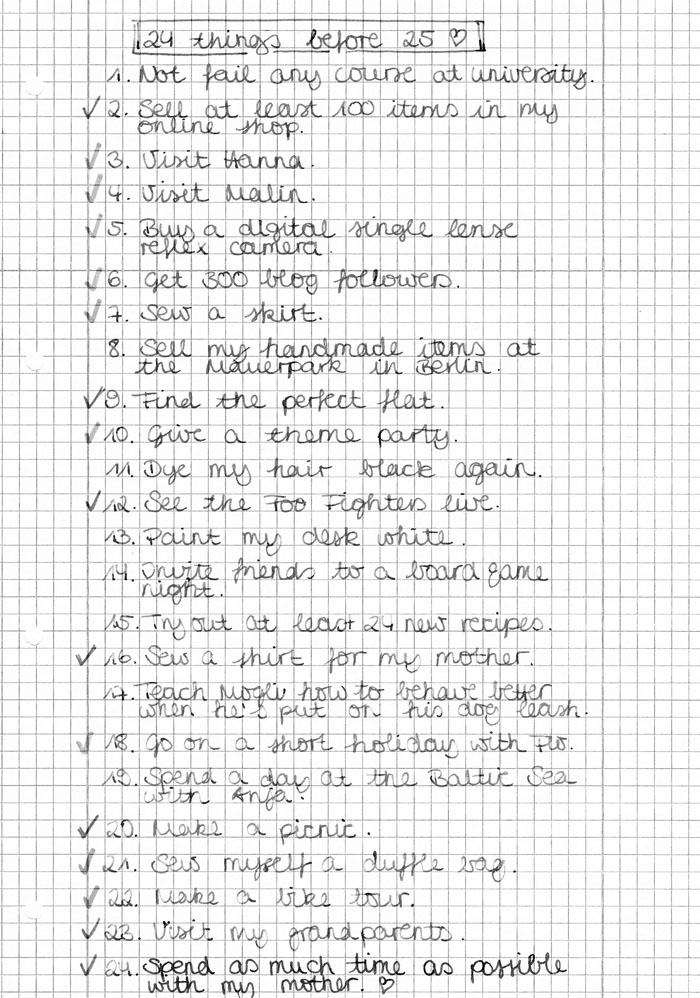 24 things before 25 ♡
1. Not fail any course at university.
✓ 2. Sell at least 100 items in my
online shop.
✓ 3. Visit Hanna.
✓ 4. Visit Malin.
✓ 5. Buy a digital single lense
reflex camera.
✓ 6. Get 300 blog followers.
✓ 7. Sew a skirt.
8. Sell my handmade items at
the Mauerpark in Berlin.
✓ 9. Find the perfect flat.
✓ 10. Give a theme party.
11. Dye my hair black again.
✓ 12. See the Foo Fighters live.
13. Paint my desk white.
14. Invite friends to a board game
night.
15. Try out at least 24 new recipes.
✓ 16. Sew a shirt for my mother.
17. Teach Mogli how to behave better
when he's put on his dog leash.
✓ 18. Go on a short holiday with Flo.
19. Spend a day at the Baltic Sea
with Anja.
✓ 20. Make a picnic.
✓ 21. Sew myself a duffle bag.
✓ 22. Make a bike tour.
✓ 23. Visit my grandparents.
✓ 24. Spend as much time as possible
with my mother. ♡